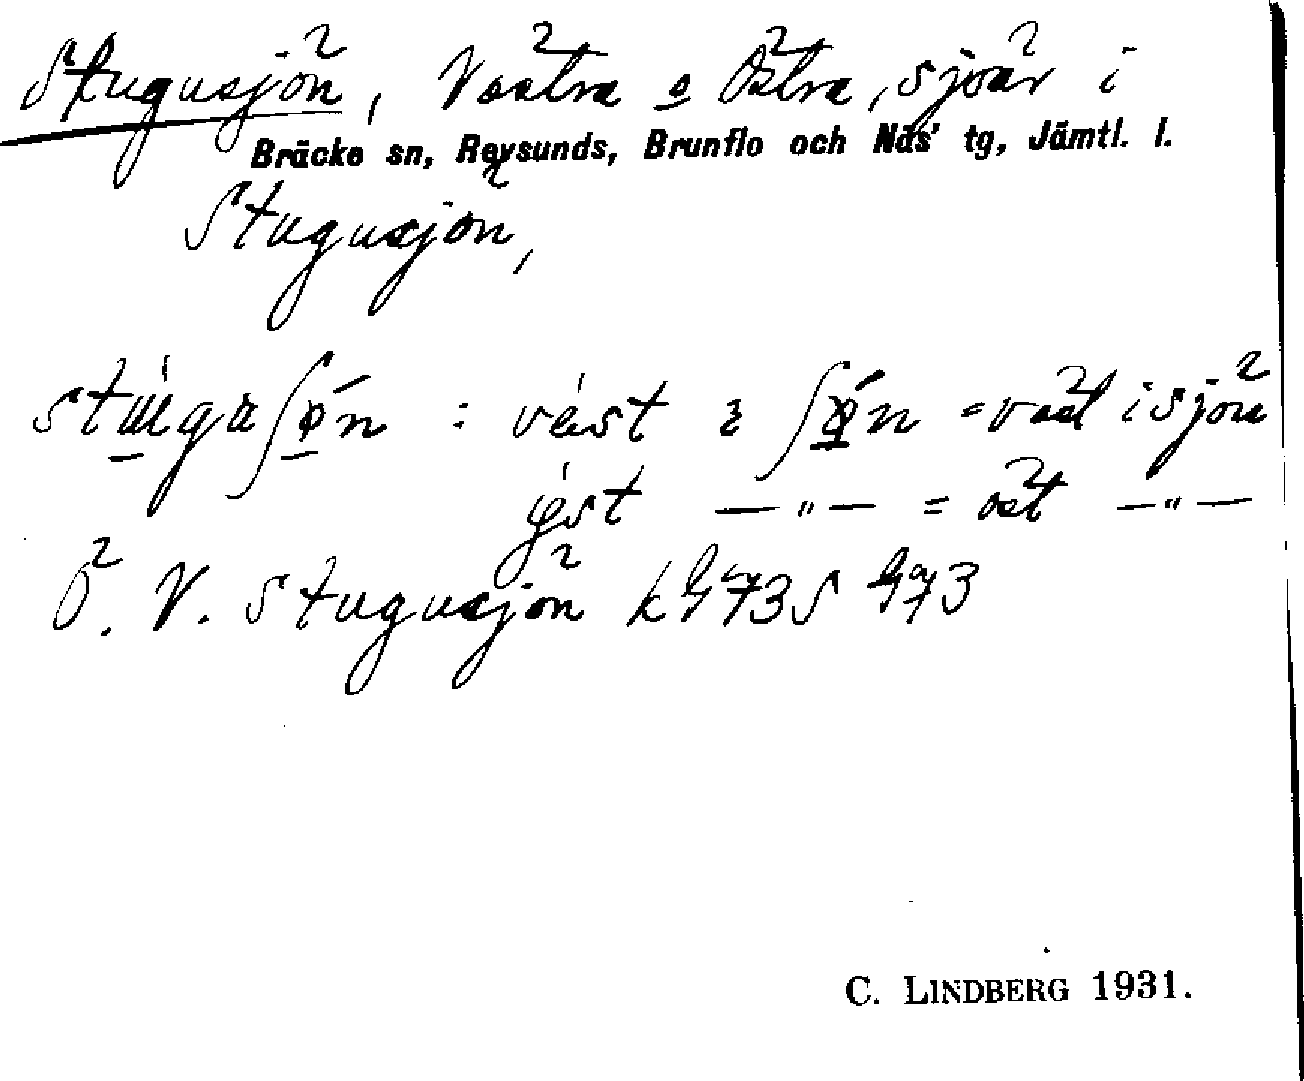 Stugusjön, Västra o Östra, sjöar i
Bräcke sn, Revsunds, Brunflo och Näs' tg, Jämtl. l.
Stugusjön,
: väst = väst i sjön
öst — " — = öst — " —
Ö. V. Stugusjön
C. LINDBERG 1931.